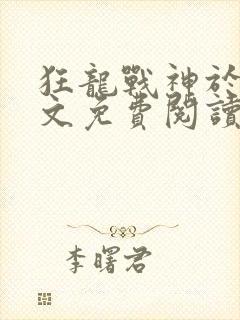 狂龍戰神於
文免費閱讀
李曙君